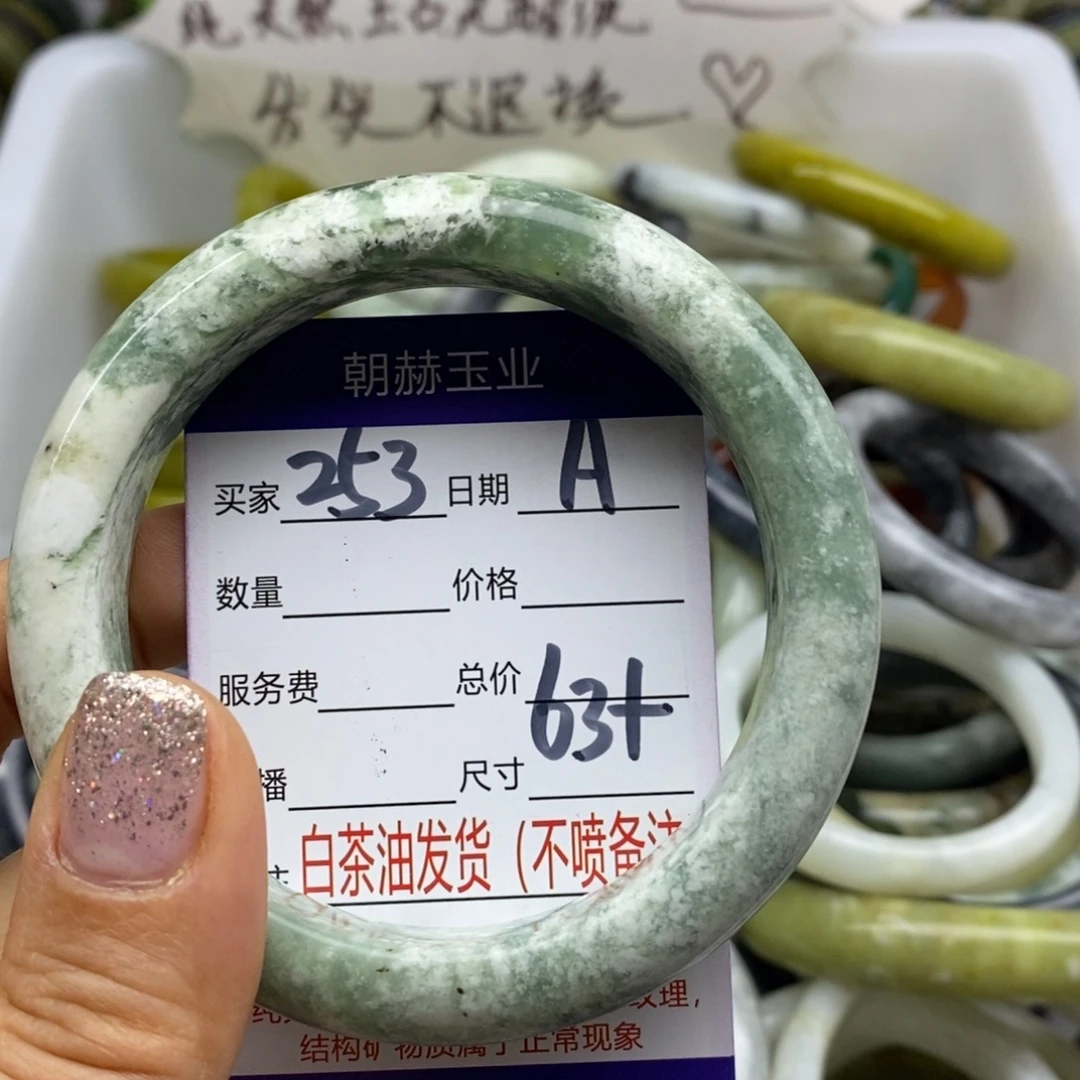 售出不退换
朝赫玉业
买家 253 日期 A
数量 价格
服务费 总价 63+
播 尺寸
白茶油发货（不喷备注
纹理，
结构矿物质属于正常现象